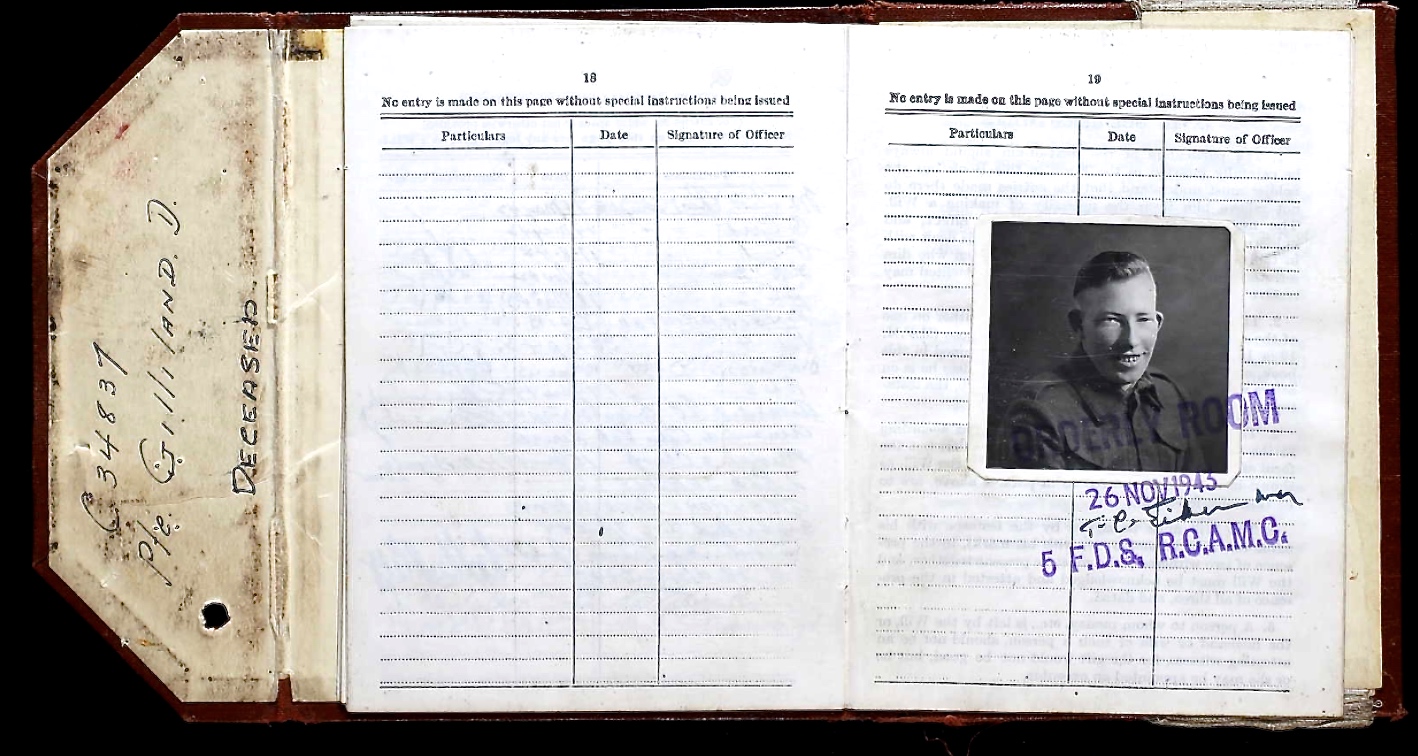 C 34837
Pte. Gilliland. D.
DECEASED.
18
No entry is made on this page without special instructions being issued
Particulars Date Signature of Officer
19
No entry is made on this page without special instructions being issued
Particulars Date Signature of Officer
ORDERLY ROOM
26 NOV 1943
5 F.D.S. R.C.A.M.C.